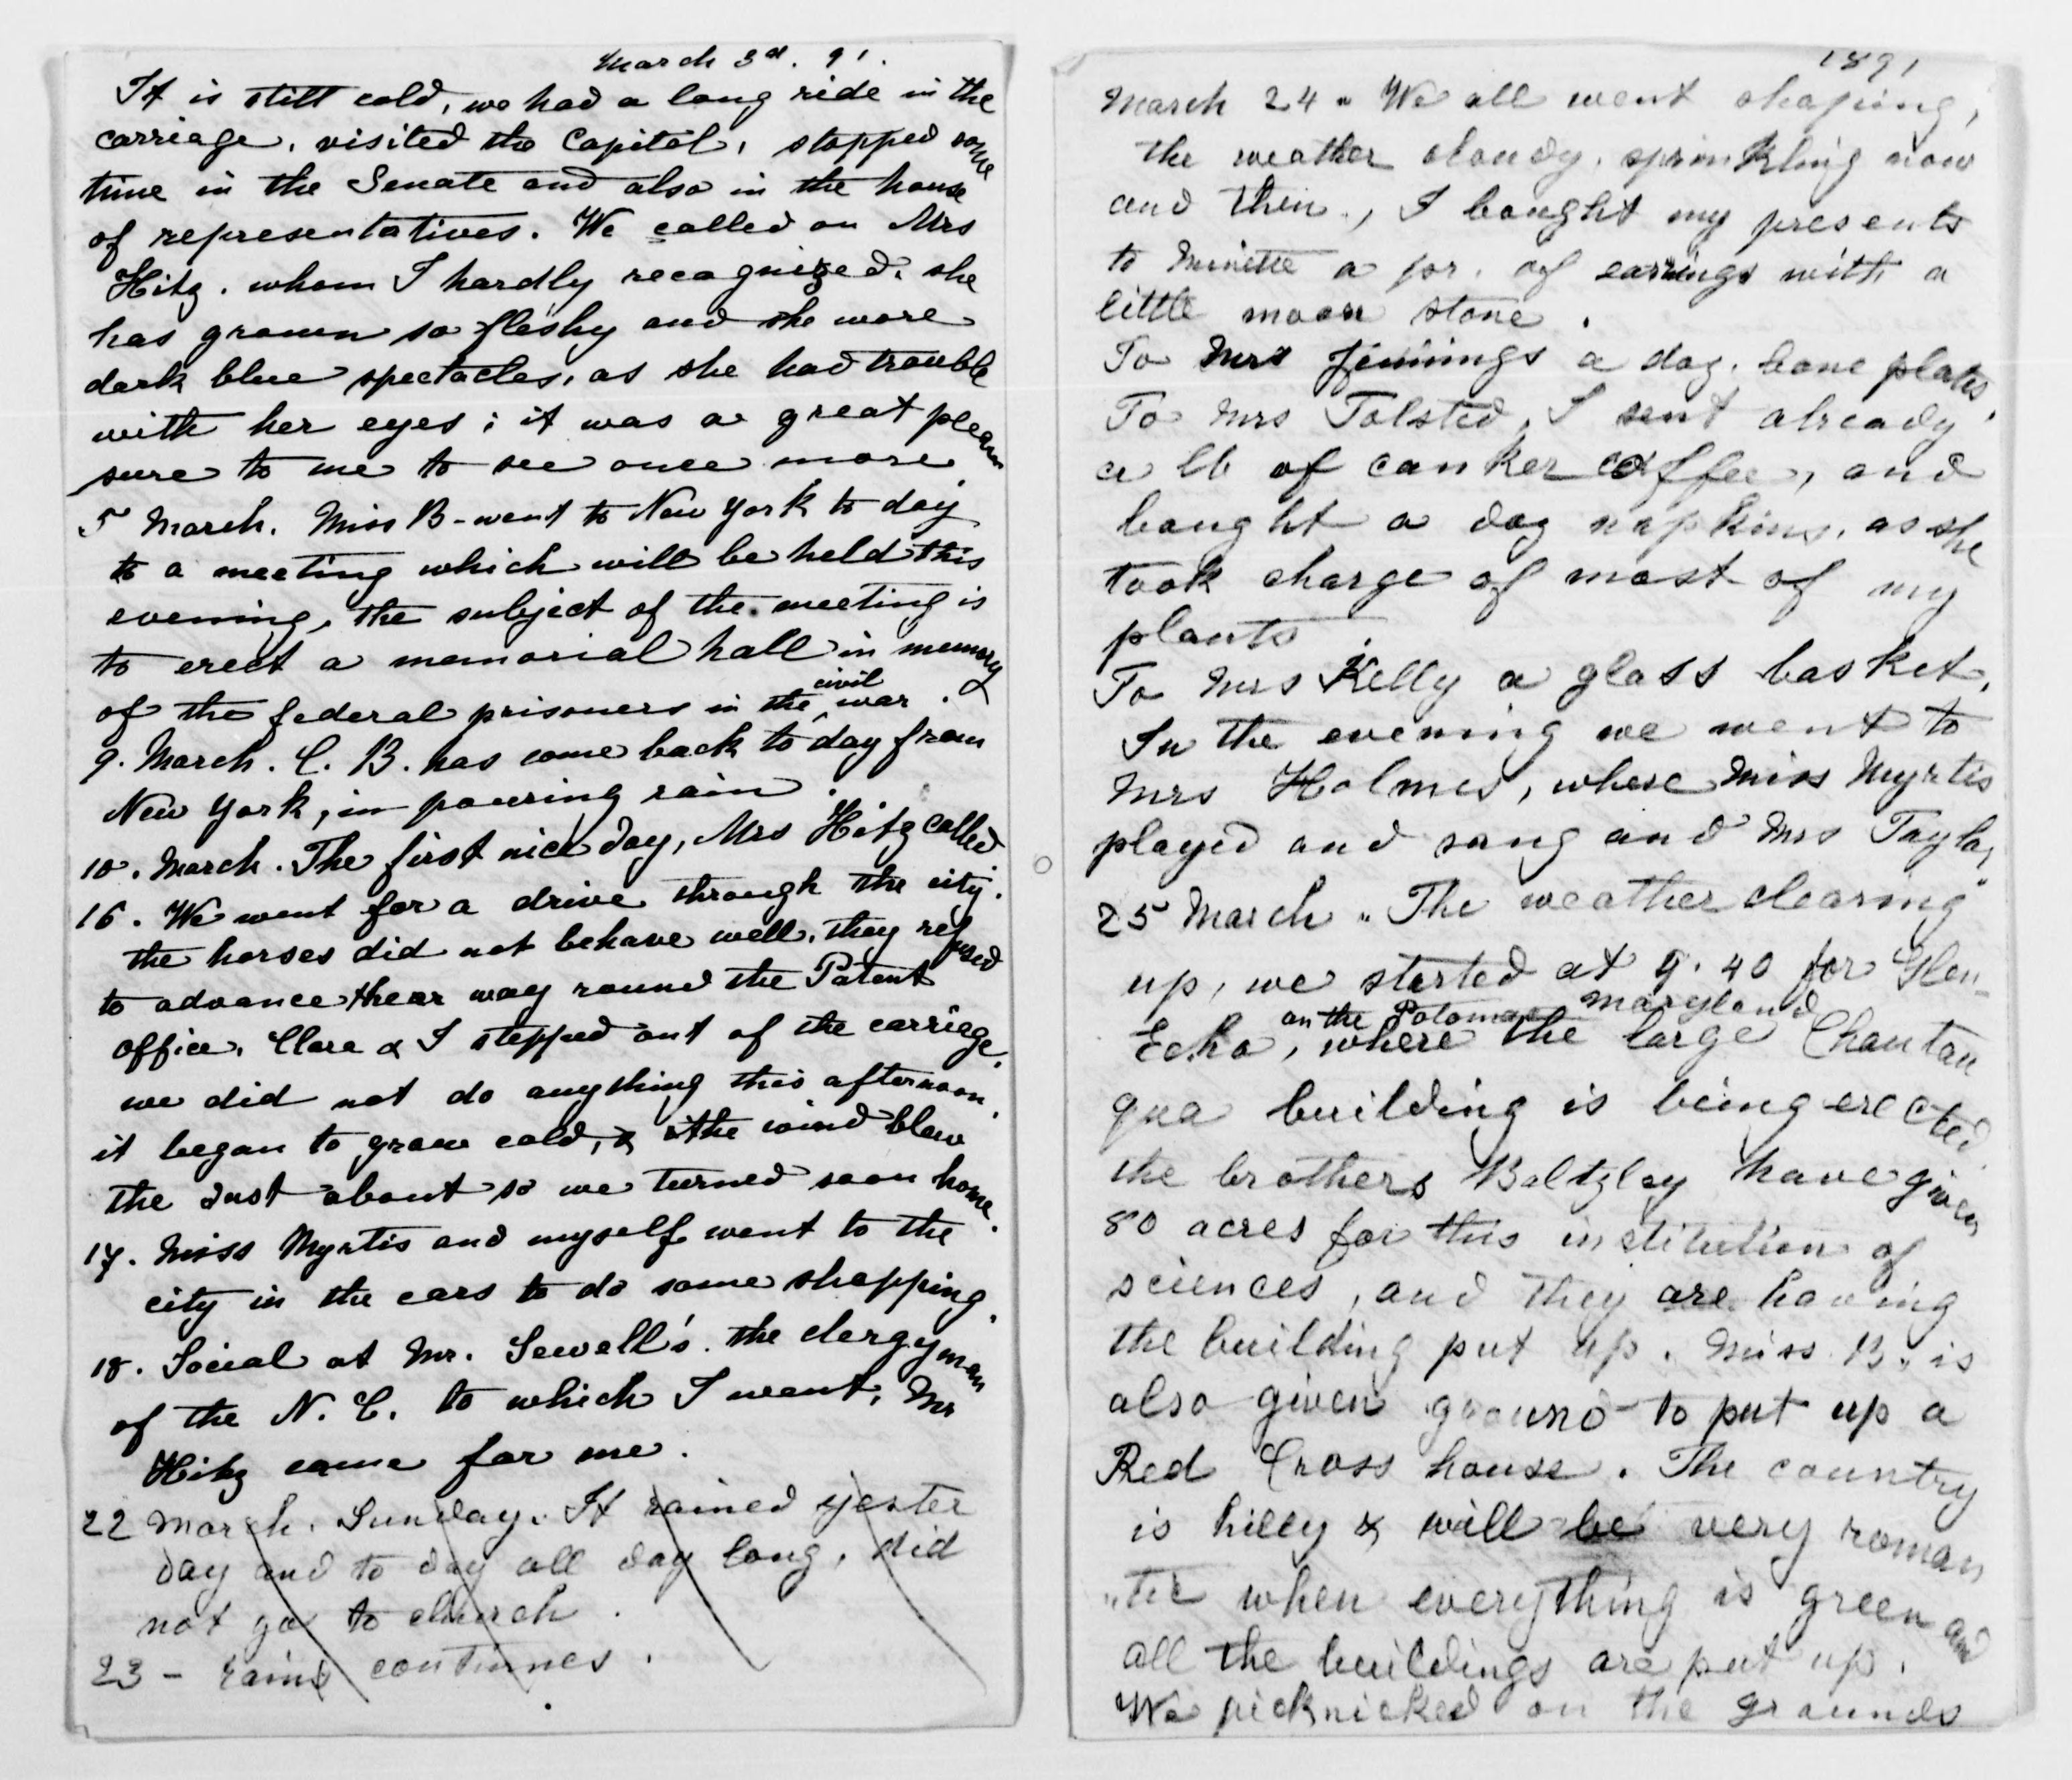 March 3d. 91.
It is still cold, we had a long ride in the
carriage, visited the Capitol, stopped some
time in the Senate and also in the house
of representatives. We called on Mrs
Hitz. whom I hardly recognized, she
has grown so fleshy and she wore
dark blue spectacles, as she had trouble
with her eyes; it was a great plea
sure to me to see once more.
5 March. Miss B- went to New York to day
to a meeting which will be held this
evening, the subject of the meeting is
to erect a memorial hall in memory
of the federal prisoners in the civil war.
9. March. C. B. has come back to day from
New York, in pouring rain.
10. March. The first nice day, Mrs Hitz called.
16. We went for a drive through the city.
the horses did not behave well, they refused
to advance thear way round the Patent
office, Clara & I stepped out of the carriege.
we did not do anything this afternoon,
it began to grow cold, & the wind blow
the dust about so we turned soon home.
17. Miss Myrtis and myself went to the
city in the cars to do some shopping.
18. Social at Mr. Sewell's. the clergyman
of the N. C. to which I went, Mr
Hitz came for me.
22 March. Sunday. It rained yester
day and to day all day long, did
not go to church.
23 - rain continues.
1891
March 24 " We all went shoping,
the weather cloudy, sprinkling now
and then., I bought my presents
to Minitie a pr. of earrings with a
little moon stone.
To Mrs Jennings a doz. bone plates.
To Mrs Tolsted, I sent already
a lb of canker coffee, and
bought a doz napkins, as she
took charge of most of my
plants.
To Mrs Kelly a glass basket.
In the evening we went to
Mrs Holmes, where Miss Myrtis
played and sang and Mrs Taylor
25 March " The weather clearing
up, we started at 9.40 for Glen-
Echo, on the Potomac Maryland where the large Chautau
qua building is being erected.
the brothers Baltzley have given
80 acres for this institution of
sciences, and they are having
the building put up. Miss B. is
also given ground to put up a
Red Cross house. The country
is hilly & will be very roman
"tic when everything is green and
all the buildings are put up.
We picknicked on the grounds